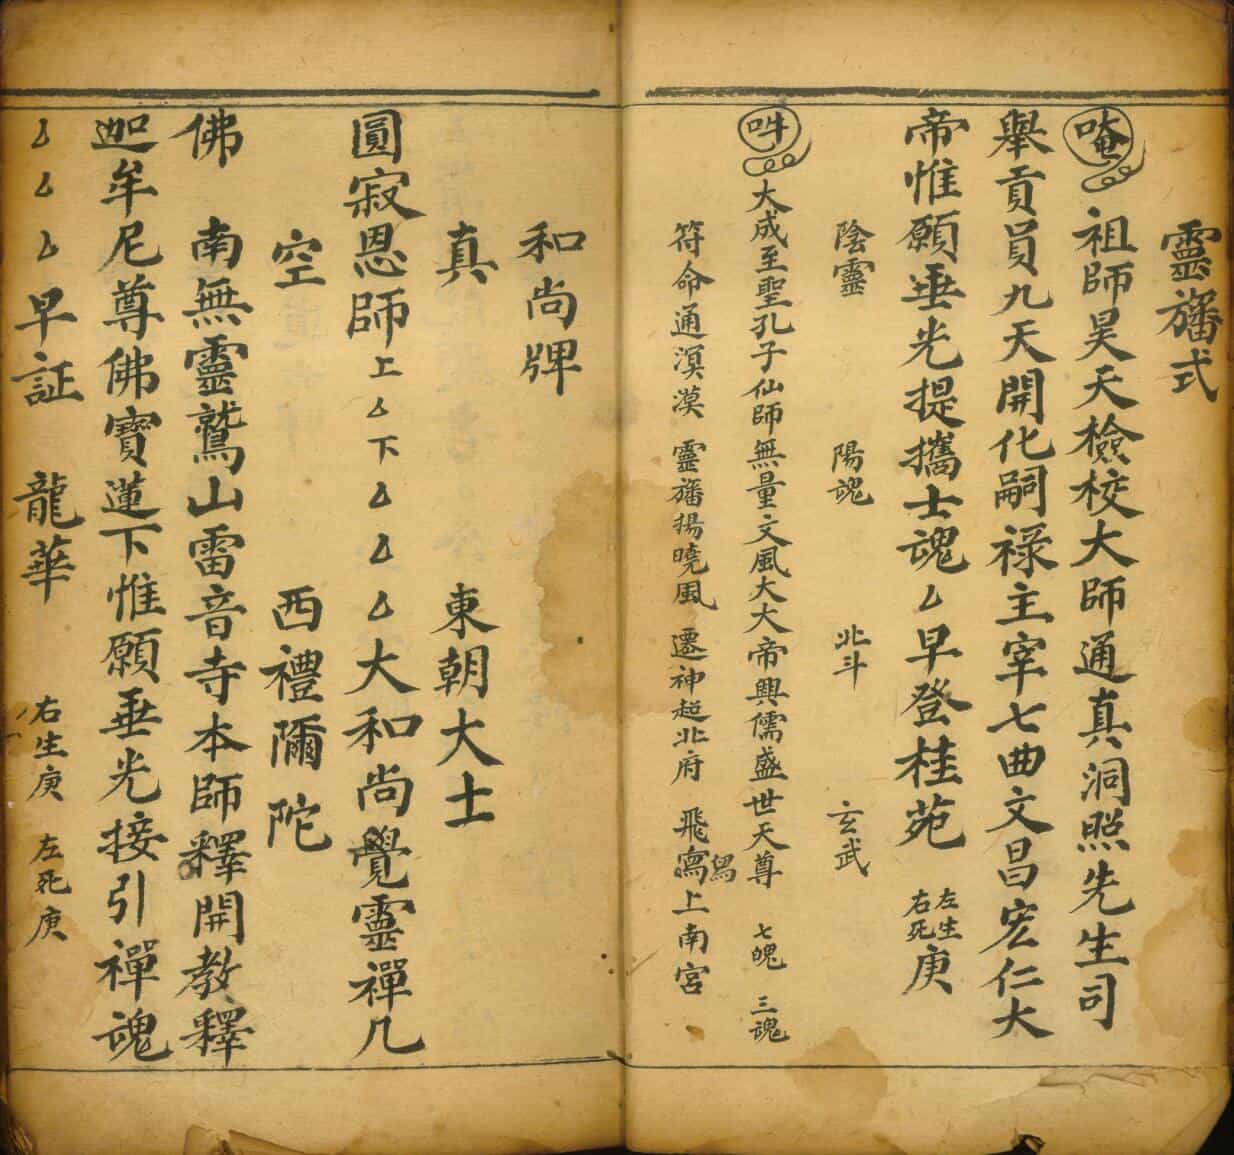 靈旛式
唵 祖師昊天檢校大師通真洞照先生司
舉貢員九天開化嗣祿主宰七曲文昌宏仁大
帝惟願垂光提攜士魂厶早登桂苑 左生右死庚
陰靈 陽魂 北斗 玄武
吽 大成至聖孔子仙師無量文風大大帝興儒盛世天尊 七魄 三魂
符命通溟漠 靈旛揚曉風 遷神超北府 飛寫舄上南宮
和尚牌
真 東朝大士
圓寂恩師上厶下厶厶厶大和尚覺靈禪几
空 西禮彌陀
佛 南無靈鷲山雷音寺本師釋開教釋
迦牟尼尊佛寶蓮下惟願垂光接引禪魂
厶厶厶早証 龍華 右生庚 左死庚